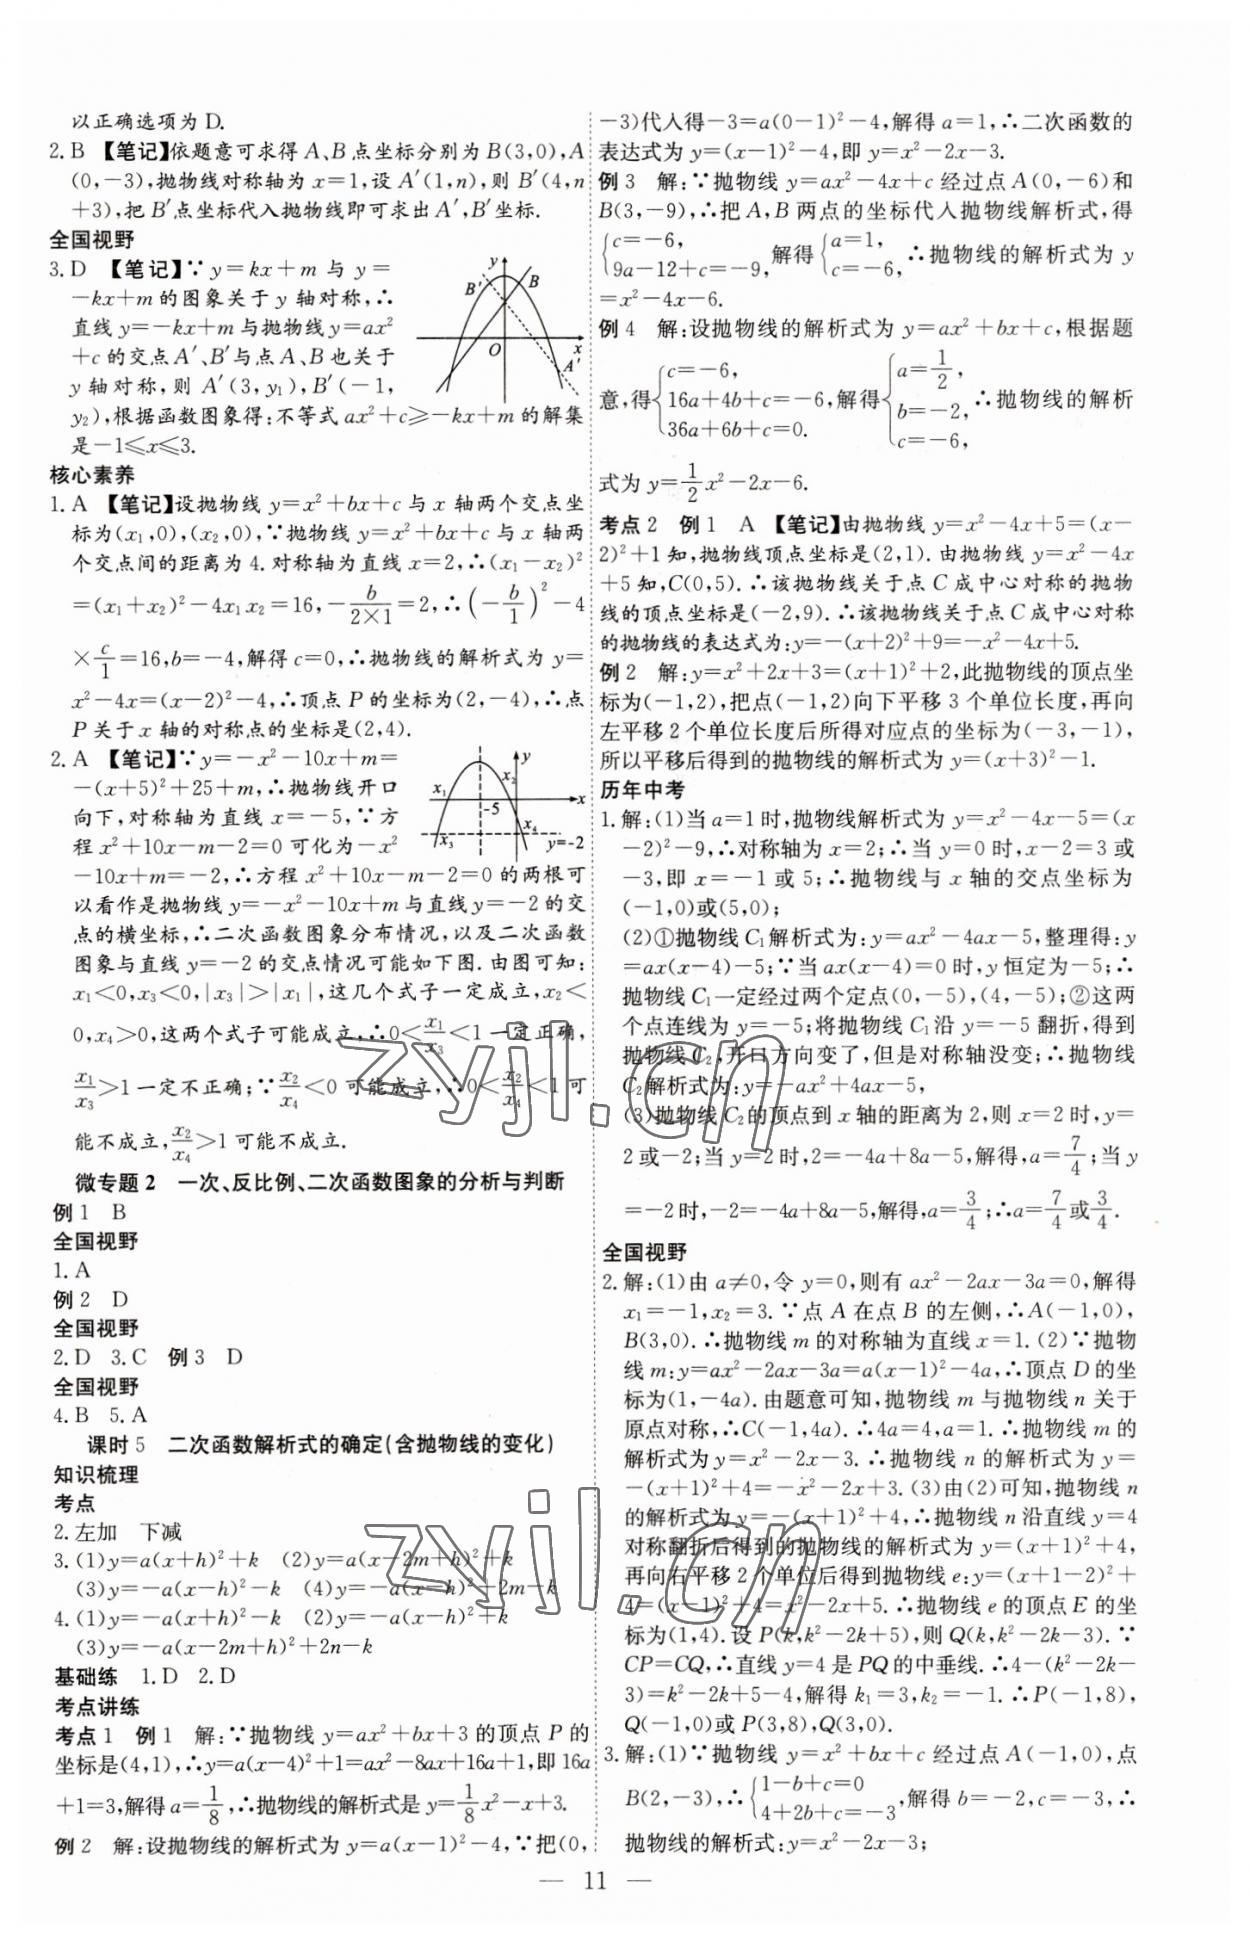 以正确选项为 D.
2. B 【笔记】依题意可求得 A、B 点坐标分别为 B(3,0),A
(0,-3),抛物线对称轴为 x=1,设 A′(1,n),则 B′(4,n
+3),把 B′点坐标代入抛物线即可求出 A′,B′坐标.
全国视野
3. D 【笔记】∵y=kx+m 与 y=
-kx+m 的图象关于 y 轴对称,∴
直线 y=-kx+m 与抛物线 y=ax²
+c 的交点 A′、B′与点 A、B 也关于
y 轴对称,则 A′(3,y₁),B′(-1,
y₂),根据函数图象得:不等式 ax²+c≥-kx+m 的解集
是-1≤x≤3.
y
B′
B
O
x
A′
核心素养
1. A 【笔记】设抛物线 y=x²+bx+c 与 x 轴两个交点坐
标为(x₁,0),(x₂,0),∵抛物线 y=x²+bx+c 与 x 轴两
个交点间的距离为 4. 对称轴为直线 x=2,∴(x₁-x₂)²
=(x₁+x₂)²-4x₁x₂=16,-b/(2×1)=2,∴(-b/1)²-4
×c/1=16,b=-4,解得 c=0,∴抛物线的解析式为 y=
x²-4x=(x-2)²-4,∴顶点 P 的坐标为(2,-4),∴点
P 关于 x 轴的对称点的坐标是(2,4).
2. A 【笔记】∵y=-x²-10x+m=
-(x+5)²+25+m,∴抛物线开口
向下,对称轴为直线 x=-5,∵方
程 x²+10x-m-2=0 可化为-x²
-10x+m=-2,∴方程 x²+10x-m-2=0 的两根可
以看作是抛物线 y=-x²-10x+m 与直线 y=-2 的交
点的横坐标,∴二次函数图象分布情况,以及二次函数
图象与直线 y=-2 的交点情况可能如下图. 由图可知:
x₁<0,x₃<0,|x₃|>|x₁|,这几个式子一定成立,x₂<
0,x₄>0,这两个式子可能成立,∴0<x₁/x₃<1 一定正确,
x₁/x₃>1 一定不正确;∵x₂/x₄<0 可能成立,∴0<x₂/x₄<1 可
能不成立,x₂/x₄>1 可能不成立.
y
x₁
x₂
-5
x
x₃
x₄
y=-2
微专题 2 一次、反比例、二次函数图象的分析与判断
例 1 B
全国视野
1. A
例 2 D
全国视野
2. D 3. C 例 3 D
全国视野
4. B 5. A
课时 5 二次函数解析式的确定(含抛物线的变化)
知识梳理
考点
2. 左加 下减
3. (1)y=a(x+h)²+k (2)y=a(x-2m+h)²+k
(3)y=-a(x-h)²-k (4)y=-a(x-h)²+2m-k
4. (1)y=-a(x+h)²-k (2)y=-a(x-h)²+k
(3)y=-a(x-2m+h)²+2n-k
基础练 1. D 2. D
考点讲练
考点 1 例 1 解:∵抛物线 y=ax²+bx+3 的顶点 P 的
坐标是(4,1),∴y=a(x-4)²+1=ax²-8ax+16a+1,即 16a
+1=3,解得 a=1/8,∴抛物线的解析式是 y=1/8x²-x+3.
例 2 解:设抛物线的解析式为 y=a(x-1)²-4,∵把(0,
-3)代入得-3=a(0-1)²-4,解得 a=1,∴二次函数的
表达式为 y=(x-1)²-4,即 y=x²-2x-3.
例 3 解:∵抛物线 y=ax²-4x+c 经过点 A(0,-6)和
B(3,-9),∴把 A,B 两点的坐标代入抛物线解析式,得
{c=-6, 9a-12+c=-9, 解得{a=1, c=-6, ∴抛物线的解析式为 y
=x²-4x-6.
例 4 解:设抛物线的解析式为 y=ax²+bx+c,根据题
意,得{c=-6, 16a+4b+c=-6, 36a+6b+c=0. 解得{a=1/2, b=-2, c=-6, ∴抛物线的解析
式为 y=1/2x²-2x-6.
考点 2 例 1 A 【笔记】由抛物线 y=x²-4x+5=(x-
2)²+1 知,抛物线顶点坐标是(2,1). 由抛物线 y=x²-4x
+5 知,C(0,5). ∴该抛物线关于点 C 成中心对称的抛物
线的顶点坐标是(-2,9). ∴该抛物线关于点 C 成中心对称
的抛物线的表达式为:y=-(x+2)²+9=-x²-4x+5.
例 2 解:y=x²+2x+3=(x+1)²+2,此抛物线的顶点坐
标为(-1,2),把点(-1,2)向下平移 3 个单位长度,再向
左平移 2 个单位长度后所得对应点的坐标为(-3,-1),
所以平移后得到的抛物线的解析式为 y=(x+3)²-1.
历年中考
1. 解:(1)当 a=1 时,抛物线解析式为 y=x²-4x-5=(x
-2)²-9,∴对称轴为 x=2;∴当 y=0 时,x-2=3 或
-3,即 x=-1 或 5;∴抛物线与 x 轴的交点坐标为
(-1,0)或(5,0);
(2)①抛物线 C₁解析式为:y=ax²-4ax-5,整理得:y
=ax(x-4)-5;∵当 ax(x-4)=0 时,y 恒定为-5;∴
抛物线 C₁一定经过两个定点(0,-5),(4,-5);②这两
个点连线为 y=-5;将抛物线 C₁沿 y=-5 翻折,得到
抛物线 C₂,开口方向变了,但是对称轴没变;∴抛物线
C₂解析式为:y=-ax²+4ax-5,
(3)抛物线 C₂的顶点到 x 轴的距离为 2,则 x=2 时,y=
2 或-2;当 y=2 时,2=-4a+8a-5,解得,a=7/4;当 y
=-2 时,-2=-4a+8a-5,解得,a=3/4;∴a=7/4或3/4.
全国视野
2. 解:(1)由 a≠0,令 y=0,则有 ax²-2ax-3a=0,解得
x₁=-1,x₂=3. ∵点 A 在点 B 的左侧,∴A(-1,0),
B(3,0). ∴抛物线 m 的对称轴为直线 x=1. (2)∵抛物
线 m:y=ax²-2ax-3a=a(x-1)²-4a,∴顶点 D 的坐
标为(1,-4a). 由题意可知,抛物线 m 与抛物线 n 关于
原点对称,∴C(-1,4a). ∴4a=4,a=1. ∴抛物线 m 的
解析式为 y=x²-2x-3. ∴抛物线 n 的解析式为 y=
-(x+1)²+4=-x²-2x+3. (3)由(2)可知,抛物线 n
的解析式为 y=-(x+1)²+4,∴抛物线 n 沿直线 y=4
对称翻折后得到的抛物线的解析式为 y=(x+1)²+4,
再向右平移 2 个单位后得到抛物线 e:y=(x+1-2)²+
4=(x-1)²+4=x²-2x+5. ∴抛物线 e 的顶点 E 的坐
标为(1,4). 设 P(k,k²-2k+5),则 Q(k,k²-2k-3). ∵
CP=CQ,∴直线 y=4 是 PQ 的中垂线. ∴4-(k²-2k-
3)=k²-2k+5-4,解得 k₁=3,k₂=-1. ∴P(-1,8),
Q(-1,0)或 P(3,8),Q(3,0).
3. 解:(1)∵抛物线 y=x²+bx+c 经过点 A(-1,0),点
B(2,-3),∴{1-b+c=0 4+2b+c=-3, 解得 b=-2,c=-3,∴
抛物线的解析式:y=x²-2x-3;
— 11 —
zyjl.cn
zyjl.cn